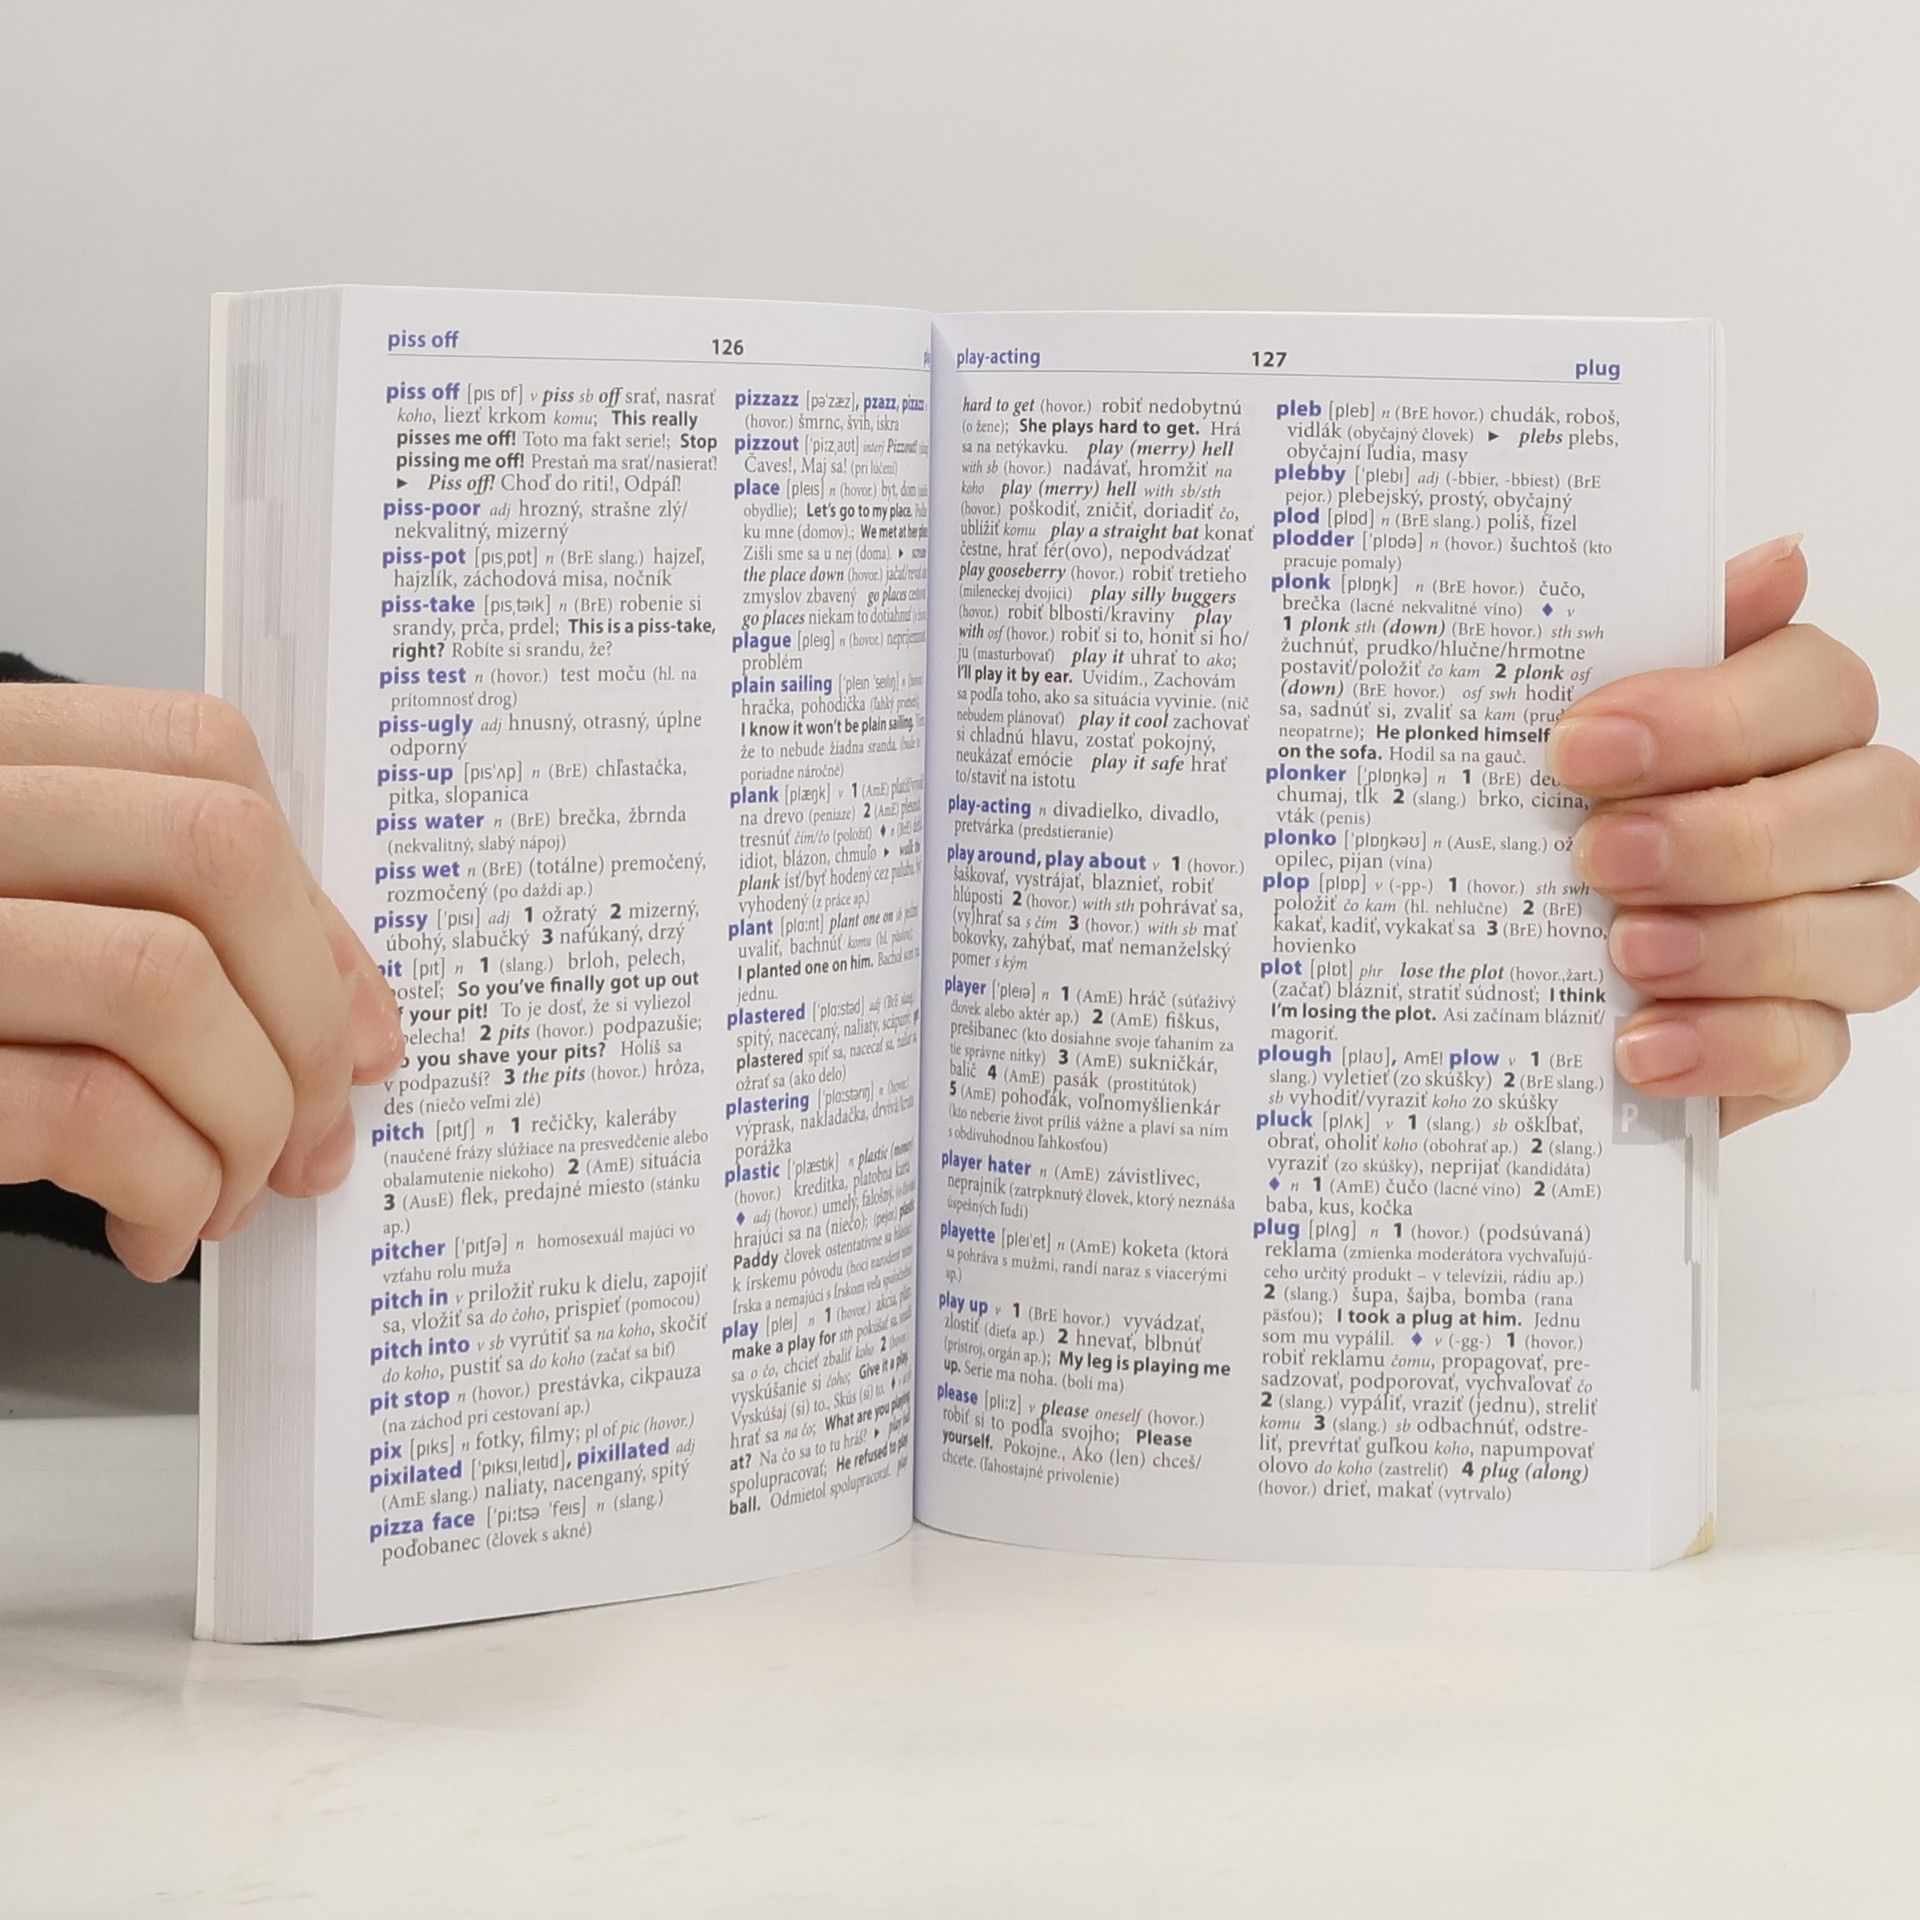 piss off
126
piss off [pɪs ɒf] v piss sb off srať, nasrať
koho, liezť krkom komu; This really
pisses me off! Toto ma fakt serie!; Stop
pissing me off! Prestaň ma srať/nasierať!
► Piss off! Choď do riti!, Odpáľ!
piss-poor adj hrozný, strašne zlý/
nekvalitný, mizerný
piss-pot [pɪsˌpɒt] n (BrE slang.) hajzeľ,
hajzlík, záchodová misa, nočník
piss-take [pɪsˌtəɪk] n (BrE) robenie si
srandy, prča, prdel; This is a piss-take,
right? Robíte si srandu, že?
piss test n (hovor.) test moču (hl. na
prítomnosť drog)
piss-ugly adj hnusný, otrasný, úplne
odporný
piss-up [pɪs'ʌp] n (BrE) chľastačka,
pitka, slopanica
piss water n (BrE) brečka, žbrnda
(nekvalitný, slabý nápoj)
piss wet n (BrE) (totálne) premočený,
rozmočený (po daždi ap.)
pissy ['pɪsɪ] adj 1 ožratý 2 mizerný,
úbohý, slabučký 3 nafúkaný, drzý
[pɪt] n 1 (slang.) brloh, pelech,
So you've finally got up out
your pit! To je dosť, že si vyliezol
2 pits (hovor.) podpazušie;
you shave your pits? Holíš sa
v podpazuší? 3 the pits (hovor.) hrôza,
des (niečo veľmi zlé)
pitch [pɪtʃ] n 1 rečičky, kaleráby
(naučené frázy slúžiace na presvedčenie alebo
obalamutenie niekoho) 2 (AmE) situácia
3 (AusE) flek, predajné miesto (stánku
ap.)
pitcher ['pɪtʃə] n homosexuál majúci vo
vzťahu rolu muža
pitch in v priložiť ruku k dielu, zapojiť
sa, vložiť sa do čoho, prispieť (pomocou)
pitch into v sb vyrútiť sa na koho, skočiť
do koho, pustiť sa do koho (začať sa biť)
pit stop n (hovor.) prestávka, cikpauza
(na záchod pri cestovaní ap.)
pix [pɪks] n fotky, filmy; pl of pic (hovor.)
pixilated ['pɪksɪˌleɪtɪd], pixillated adj
(AmE slang.) naliaty, nacenganý, spitý
pizza face ['piːtsə 'feɪs] n (slang.)
poďobanec (človek s akné)
pizzazz [pə'zæz], pzazz,
(hovor.) šmrnc, švih, iskra
pizzout ['piːzˌaʊt] interj Pizzout!
Čaves!, Maj sa! (pri lúčení)
place [pleɪs] n (hovor.) byt, dom
obydlie); Let's go to my place.
ku mne (domov).; We met at her
Zišli sme sa u nej (doma). ►
the place down (hovor.)
zmyslov zbavený go places
go places niekam to dotiahnuť
plague [pleɪg] n (hovor.)
problém
plain sailing ['pleɪn 'seɪlɪŋ] n
hračka, pohodička (ľahký
I know it won't be plain sailing.
že to nebude žiadna sranda.
poriadne náročné)
plank [plæŋk] v 1 (AmE)
na drevo (peniaze) 2 (AmE)
tresnúť čím/čo (položiť) ♦ n (BrE)
idiot, blázon, chmuľo ► walk the
plank ísť/byť hodený cez palubu,
vyhodený (z práce ap.)
plant [plɑːnt] plant one on sb
uvaliť, bachnúť komu
I planted one on him.
jednu.
plastered ['plɑːstəd] adj (BrE slang.)
spitý, nacecaný, naliaty,
plastered spiť sa, nacecať sa,
ožrať sa (ako delo)
plastering ['plɑːstərɪŋ] n (hovor.)
výprask, nakladačka, drvivá/krutá
porážka
plastic ['plæstɪk] n plastic (money)
(hovor.) kreditka, platobná karta
♦ adj (hovor.) umelý, falošný,
hrajúci sa na (niečo); (pejor.) plastic
Paddy človek ostentatívne sa hlásiaci
k írskemu pôvodu (hoci narodený mimo
Írska a nemajúci s Írskom veľa spoločného)
play [pleɪ] n 1 (hovor.) akcia, plán
make a play for sth pokúšať sa
sa o čo, chcieť zbaliť koho 2 (hovor.)
vyskúšanie si čoho; Give it a play.
Vyskúšaj (si) to., Skús (si) to. ♦ v
hrať sa na čo; What are you playing
at? Na čo sa to tu hráš? ► play ball
spolupracovať; He refused to play
ball. Odmietol spolupracovať. play
play-acting
127
plug
hard to get (hovor.) robiť nedobytnú
(o žene); She plays hard to get. Hrá
sa na netýkavku. play (merry) hell
with sb (hovor.) nadávať, hromžiť na
koho play (merry) hell with sb/sth
(hovor.) poškodiť, zničiť, doriadiť čo,
ublížiť komu play a straight bat konať
čestne, hrať fér(ovo), nepodvádzať
play gooseberry (hovor.) robiť tretieho
(mileneckej dvojici) play silly buggers
(hovor.) robiť blbosti/kraviny play
with osf (hovor.) robiť si to, honiť si ho/
ju (masturbovať) play it uhrať to ako;
I'll play it by ear. Uvidím., Zachovám
sa podľa toho, ako sa situácia vyvinie. (nič
nebudem plánovať) play it cool zachovať
si chladnú hlavu, zostať pokojný,
neukázať emócie play it safe hrať
to/staviť na istotu
play-acting n divadielko, divadlo,
pretvárka (predstieranie)
play around, play about v 1 (hovor.)
šaškovať, vystrájať, blaznieť, robiť
hlúposti 2 (hovor.) with sth pohrávať sa,
(vy)hrať sa s čím 3 (hovor.) with sb mať
bokovky, zahýbať, mať nemanželský
pomer s kým
player ['pleɪə] n 1 (AmE) hráč (súťaživý
človek alebo aktér ap.) 2 (AmE) fiškus,
prešibanec (kto dosiahne svoje ťahaním za
tie správne nitky) 3 (AmE) sukničkár,
balič 4 (AmE) pasák (prostitútok)
5 (AmE) pohoďák, voľnomyšlienkár
(kto neberie život príliš vážne a plaví sa ním
s obdivuhodnou ľahkosťou)
player hater n (AmE) závistlivec,
neprajník (zatrpknutý človek, ktorý neznáša
úspešných ľudí)
playette [pleɪ'et] n (AmE) koketa (ktorá
sa pohráva s mužmi, randí naraz s viacerými
ap.)
play up v 1 (BrE hovor.) vyvádzať,
zlostiť (dieťa ap.) 2 hnevať, blbnúť
(prístroj, orgán ap.); My leg is playing me
up. Serie ma noha. (bolí ma)
please [pliːz] v please oneself (hovor.)
robiť si to podľa svojho; Please
yourself. Pokojne., Ako (len) chceš/
chcete. (ľahostajné privolenie)
pleb [pleb] n (BrE hovor.) chudák, roboš,
vidlák (obyčajný človek) ► plebs plebs,
obyčajní ľudia, masy
plebby ['plebɪ] adj (-bbier, -bbiest) (BrE
pejor.) plebejský, prostý, obyčajný
plod [plɒd] n (BrE slang.) poliš, fízel
plodder ['plɒdə] n (hovor.) šuchtoš (kto
pracuje pomaly)
plonk [plɒŋk] n (BrE hovor.) čučo,
brečka (lacné nekvalitné víno) ♦ v
1 plonk sth (down) (BrE hovor.) sth swh
žuchnúť, prudko/hlučne/hrmotne
postaviť/položiť čo kam 2 plonk osf
(down) (BrE hovor.) osf swh hodiť
sa, sadnúť si, zvaliť sa kam
neopatrne); He plonked himself
on the sofa. Hodil sa na gauč.
plonker ['plɒŋkə] n 1 (BrE)
chumaj, tĺk 2 (slang.) brko, cicina,
vták (penis)
plonko ['plɒŋkəʊ] n (AusE, slang.)
opilec, pijan (vína)
plop [plɒp] v (-pp-) 1 (hovor.) sth swh
položiť čo kam (hl. nehlučne) 2 (BrE)
kakať, kadiť, vykakať sa 3 (BrE) hovno,
hovienko
plot [plɒt] phr lose the plot (hovor.,žart.)
(začať) blázniť, stratiť súdnosť; I think
I'm losing the plot. Asi začínam blázniť/
magoriť.
plough [plaʊ], AmE! plow v 1 (BrE
slang.) vyletieť (zo skúšky) 2 (BrE slang.)
sb vyhodiť/vyraziť koho zo skúšky
pluck [plʌk] v 1 (slang.) sb ošklbať,
obrať, oholiť koho (obohrať ap.) 2 (slang.)
vyraziť (zo skúšky), neprijať (kandidáta)
♦ n 1 (AmE) čučo (lacné víno) 2 (AmE)
baba, kus, kočka
plug [plʌg] n 1 (hovor.) (podsúvaná)
reklama (zmienka moderátora vychvaľujú-
ceho určitý produkt – v televízii, rádiu ap.)
2 (slang.) šupa, šajba, bomba (rana
päsťou); I took a plug at him. Jednu
som mu vypálil. ♦ v (-gg-) 1 (hovor.)
robiť reklamu čomu, propagovať, pre-
sadzovať, podporovať, vychvaľovať čo
2 (slang.) vypáliť, vraziť (jednu), streliť
komu 3 (slang.) sb odbachnúť, odstre-
liť, prevŕtať guľkou koho, napumpovať
olovo do koho (zastreliť) 4 plug (along)
(hovor.) drieť, makať (vytrvalo)
P